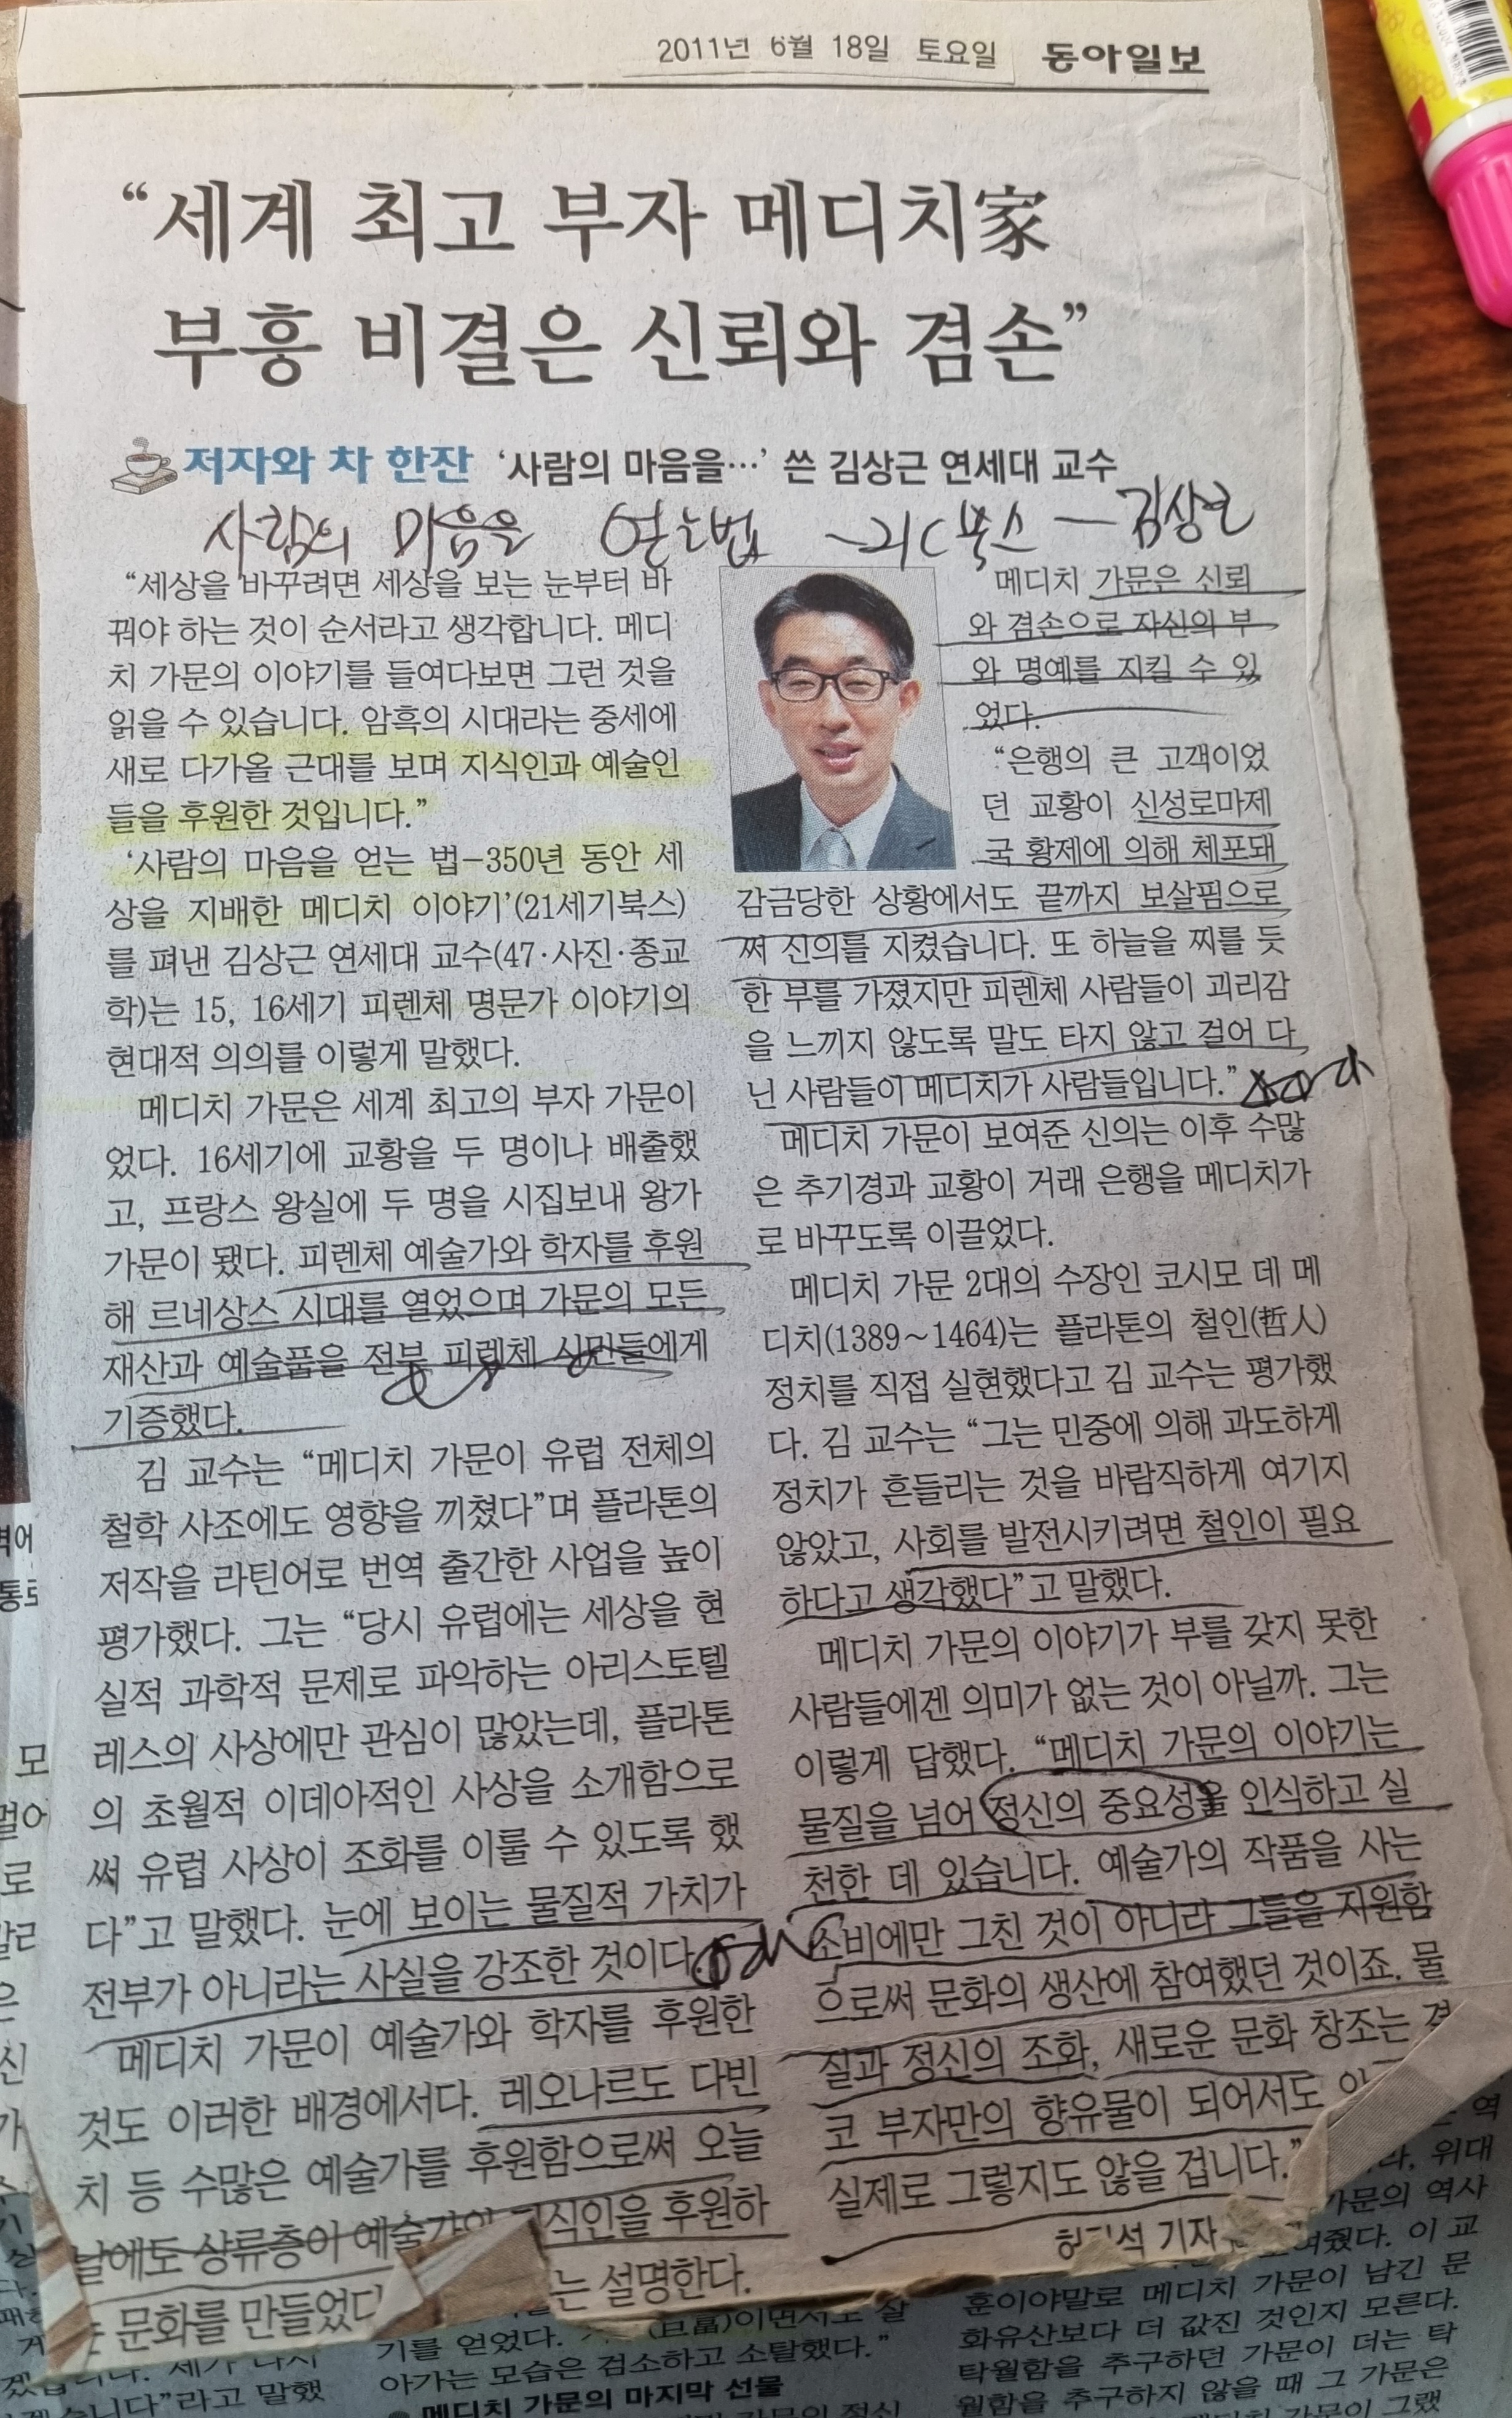 2011년 6월 18일 토요일 동아일보
“세계 최고 부자 메디치家
부흥 비결은 신뢰와 겸손”
저자와 차 한잔 ‘사람의 마음을…’ 쓴 김상근 연세대 교수
사람의 마음을 얻는법 -21C북스 - 김상근
“세상을 바꾸려면 세상을 보는 눈부터 바
꿔야 하는 것이 순서라고 생각합니다. 메디
치 가문의 이야기를 들여다보면 그런 것을
읽을 수 있습니다. 암흑의 시대라는 중세에
새로 다가올 근대를 보며 지식인과 예술인
들을 후원한 것입니다.”
‘사람의 마음을 얻는 법-350년 동안 세
상을 지배한 메디치 이야기’(21세기북스)
를 펴낸 김상근 연세대 교수(47·사진·종교
학)는 15, 16세기 피렌체 명문가 이야기의
현대적 의의를 이렇게 말했다.
메디치 가문은 세계 최고의 부자 가문이
었다. 16세기에 교황을 두 명이나 배출했
고, 프랑스 왕실에 두 명을 시집보내 왕가
가문이 됐다. 피렌체 예술가와 학자를 후원
해 르네상스 시대를 열었으며 가문의 모든
재산과 예술품을 전부 피렌체 시민들에게
기증했다.
김 교수는 “메디치 가문이 유럽 전체의
철학 사조에도 영향을 끼쳤다”며 플라톤의
저작을 라틴어로 번역 출간한 사업을 높이
평가했다. 그는 “당시 유럽에는 세상을 현
실적 과학적 문제로 파악하는 아리스토텔
레스의 사상에만 관심이 많았는데, 플라톤
의 초월적 이데아적인 사상을 소개함으로
써 유럽 사상이 조화를 이룰 수 있도록 했
다”고 말했다. 눈에 보이는 물질적 가치가
전부가 아니라는 사실을 강조한 것이다.
메디치 가문이 예술가와 학자를 후원한
것도 이러한 배경에서다. 레오나르도 다빈
치 등 수많은 예술가를 후원함으로써 오늘
날에도 상류층이 예술가와 지식인을 후원하
는 문화를 만들었다 는 설명한다.
메디치 가문은 신뢰
와 겸손으로 자신의 부
와 명예를 지킬 수 있
었다.
“은행의 큰 고객이었
던 교황이 신성로마제
국 황제에 의해 체포돼
감금당한 상황에서도 끝까지 보살핌으로
써 신의를 지켰습니다. 또 하늘을 찌를 듯
한 부를 가졌지만 피렌체 사람들이 괴리감
을 느끼지 않도록 말도 타지 않고 걸어 다
닌 사람들이 메디치가 사람들입니다.”
메디치 가문이 보여준 신의는 이후 수많
은 추기경과 교황이 거래 은행을 메디치가
로 바꾸도록 이끌었다.
메디치 가문 2대의 수장인 코시모 데 메
디치(1389~1464)는 플라톤의 철인(哲人)
정치를 직접 실현했다고 김 교수는 평가했
다. 김 교수는 “그는 민중에 의해 과도하게
정치가 흔들리는 것을 바람직하게 여기지
않았고, 사회를 발전시키려면 철인이 필요
하다고 생각했다”고 말했다.
메디치 가문의 이야기가 부를 갖지 못한
사람들에겐 의미가 없는 것이 아닐까. 그는
이렇게 답했다. “메디치 가문의 이야기는
물질을 넘어 정신의 중요성을 인식하고 실
천한 데 있습니다. 예술가의 작품을 사는
소비에만 그친 것이 아니라 그들을 지원함
으로써 문화의 생산에 참여했던 것이죠. 물
질과 정신의 조화, 새로운 문화 창조는 결
코 부자만의 향유물이 되어서도
실제로 그렇지도 않을 겁니다.”
석 기자
위대
가문의 역사
여줬다. 이 교
훈이야말로 메디치 가문이 남긴 문
화유산보다 더 값진 것인지 모른다.
탁월함을 추구하던 가문이 더는 탁
월함을 추구하지 않을 때 그 가문은
기를 얻었다.
아가는 모습은 검소하고 소탈했다.”
메디치 가문의 마지막 선물
라고 말했